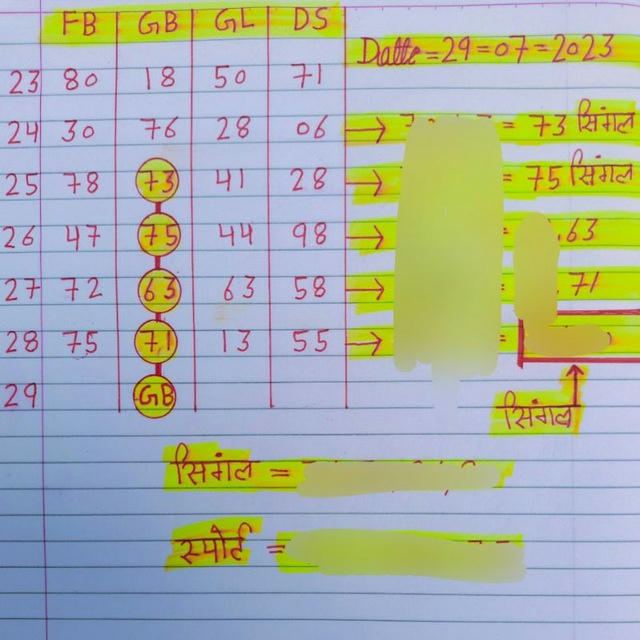 FB GB GL DS
Datte=29=07=2023
23 80 18 50 71
24 30 76 28 06 → = 73 सिंगल
25 78 73 41 28 → = 75 सिंगल
26 47 75 44 98 → 63
27 72 63 63 58 → = 71
28 75 71 13 55 → =
29 GB
सिंगल
सिंगल =
स्पोर्ट =